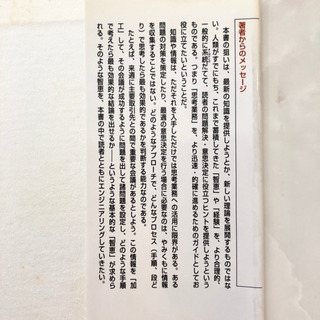 著者からのメッセージ
本書の狙いは、最新の知識を提供しようとか、新しい理論を展開するものではな
い。人類がすでにもち、これまで蓄積してきた「智恵」や「経験」を、より合理的、
一般的に系統だてて、読者の問題解決・意思決定に役立つヒントを提供しようという
ものである。つまり「思考業務」を、より迅速・的確に進めるためのガイドとしてお
役に立てたいということだ。
知識や情報は、ただそれを入手しただけでは思考業務への活用に限界がある。ある
問題の対策を策定したり、最適の意思決定を行う場合に必要なのは、やみくもに情報
を収集することではない。どのようなアプローチで、どんなプロセス（手順、段ど
り）で思考したら最も効果的であるかを判断する能力なのである。
たとえば、来週に主要取引先との間で重要な会議があるとしよう。この情報を「加
工」して、その会議が成功するように問題を出して諸問題を設定し、どのような手順
で考えたら最も効果的な結論を出せるか――というような基本的な「智恵」が求めら
れる。そのような智恵を、本書の中で読者とともにエンジニアリングしていきたい。